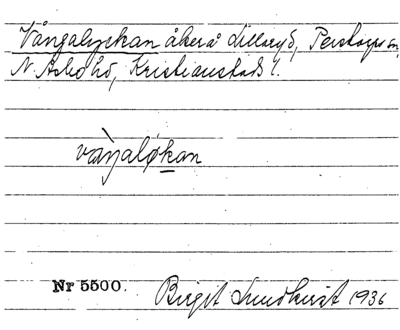 Vångalyckan åker å Lillaryd, Perstorps sn,
N. Asbo hd, Kristianstads l.
vàŋaløkan
Nr 5500.
Birgit Lundkvist 1936